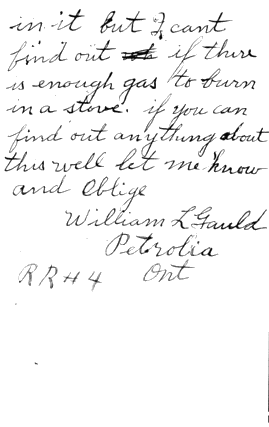 in it but I cant
find out if there
is enough gas to burn
in a stove. if you can
find out anything about
this well let me know
and oblige
William L Gauld
Petrolia
RR #4 Ont